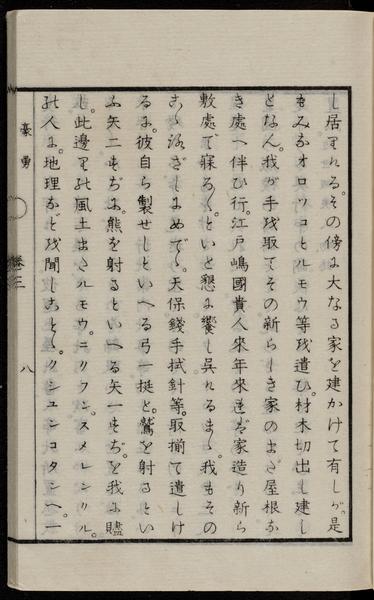 し居まれる。その傍に大なる家を建かけて有しが。是
もみなオロッコとルモウ等を遣ひ。材木切出し建し
となん。我が手を取てその新らしき家のまだ屋根な
き處へ伴ひ行。江戸嶋國貴人來年來らば家造り新ら
敷處で寐ろ〱。といと懇に饗し呉れるまゝ。我もその
こゝろざしにめでゝ。天保錢手拭針等。取揃て遣しけ
るに。彼自ら製せしといへる弓一挺と。鷲を射るとい
ふ矢二すぢに。熊を射るといへる矢一すぢ。を我に贐
し。此邊りの風土出さルモウ。ニリフン。スメレンクル。
の人に。地理などを聞しこと。クシユンコタンへ。一
豪勇
卷三
八